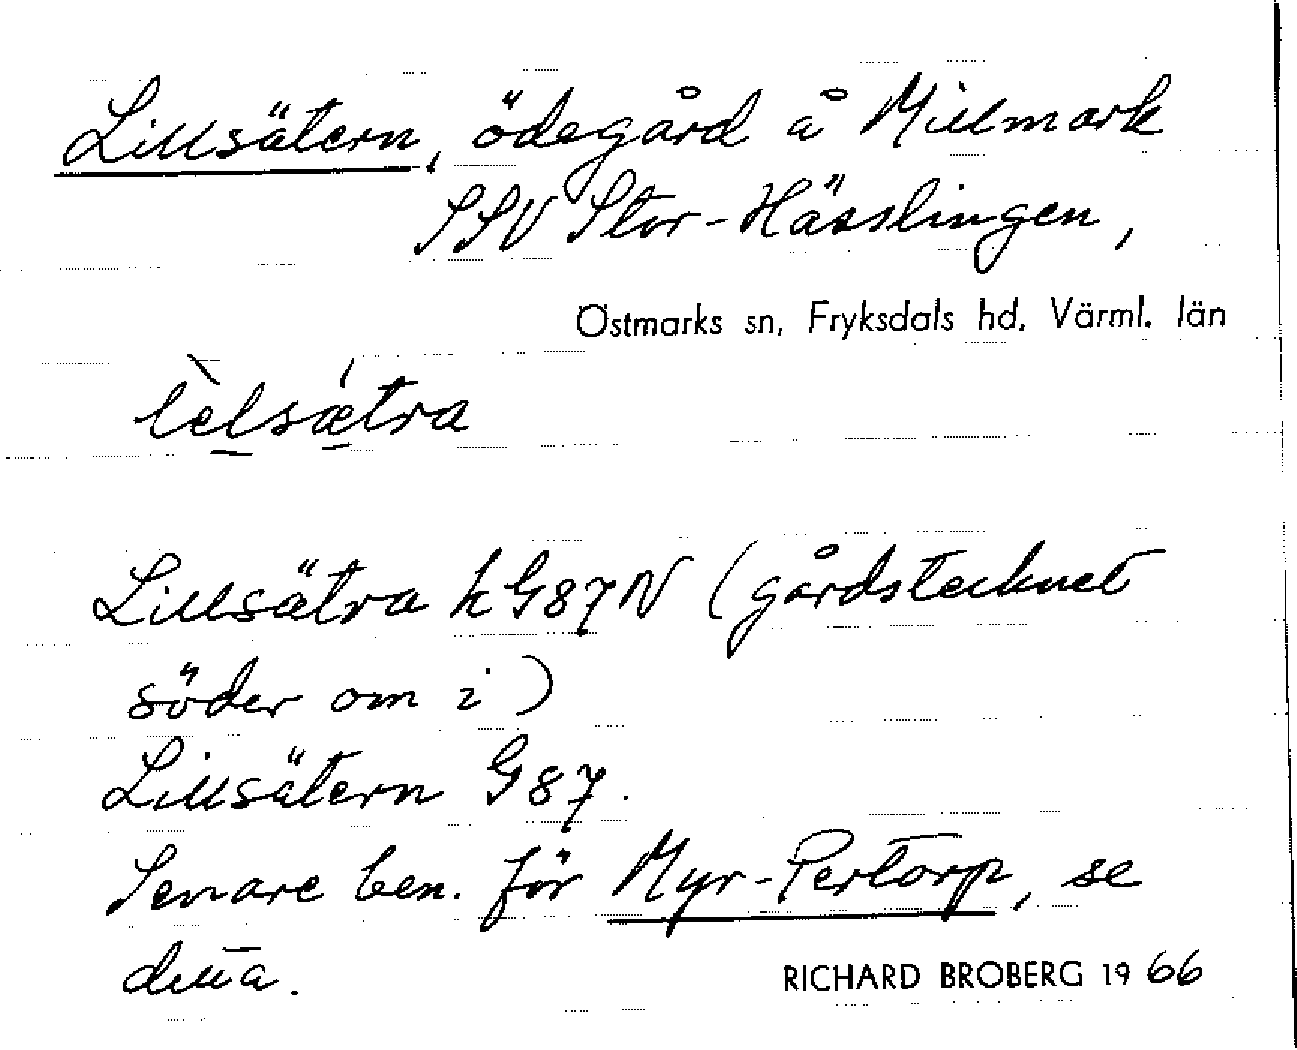 Lillsätern, ödegård å Millmark
SSV Stor-Hässlingen,
Östmarks sn, Fryksdals hd. Värml. län
lèlsǽtra
Lillsätra k G87N (gårdstecknet
söder om i)
Lillsätern G87.
Senare ben. för Myr-Pertorp, se
detta.
RICHARD BROBERG 1966